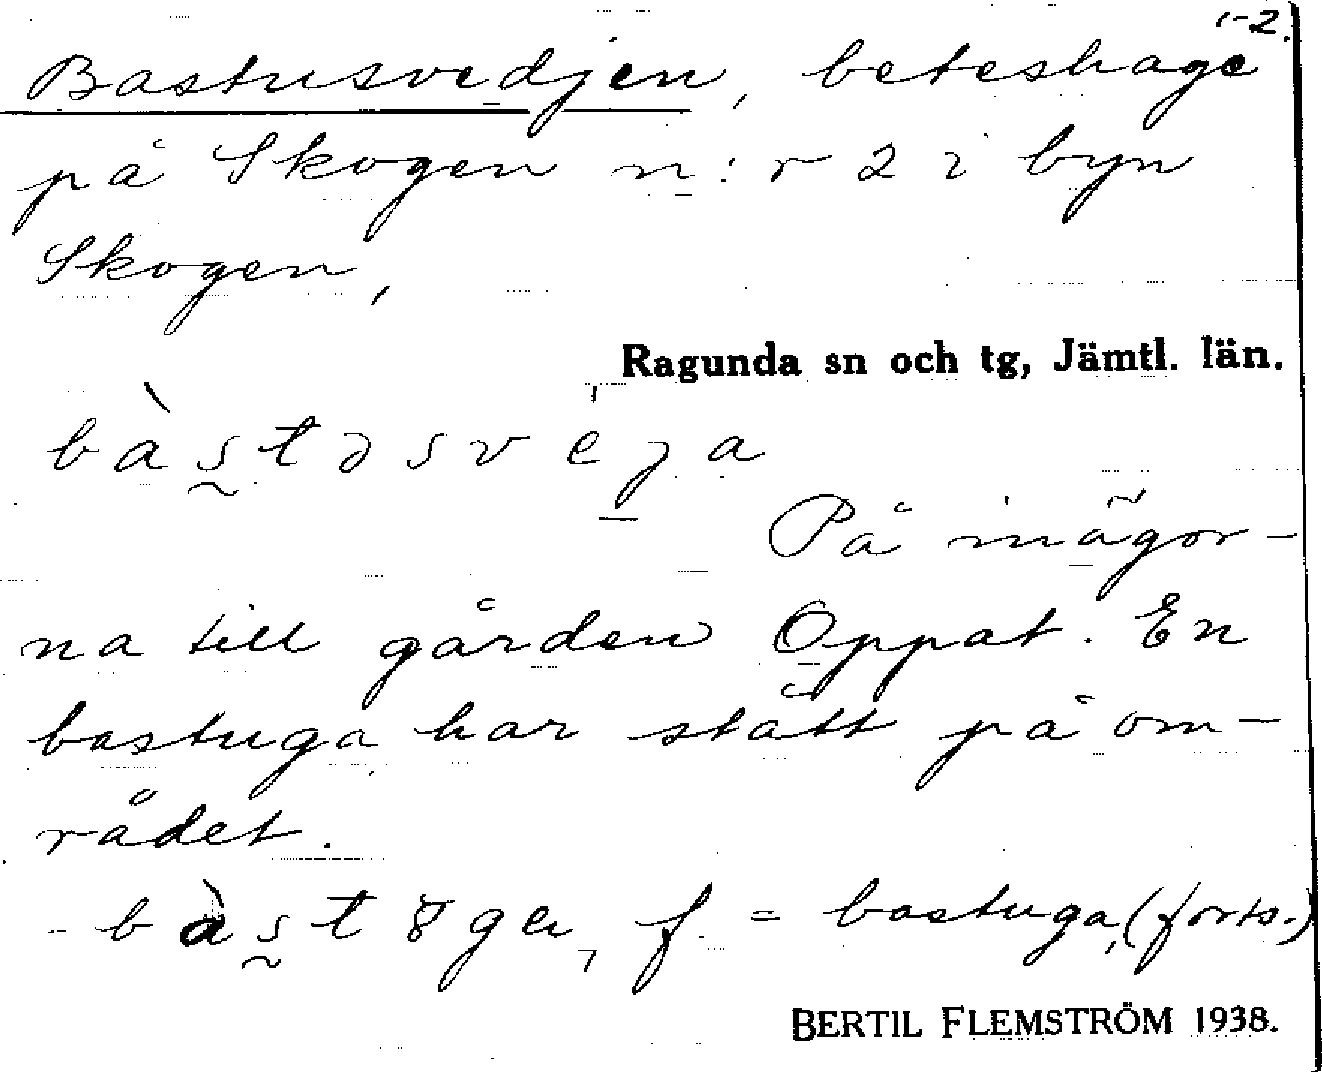 1-2.
Bastusvedjen, beteshage
på Skogen n:r 2 i byn
Skogen,
Ragunda sn och tg, Jämtl. län.
På inägor-
na till gården Oppat. En
bastuga har stått på om-
rådet.
f = bastuga, (forts.)
BERTIL FLEMSTRÖM 1938.